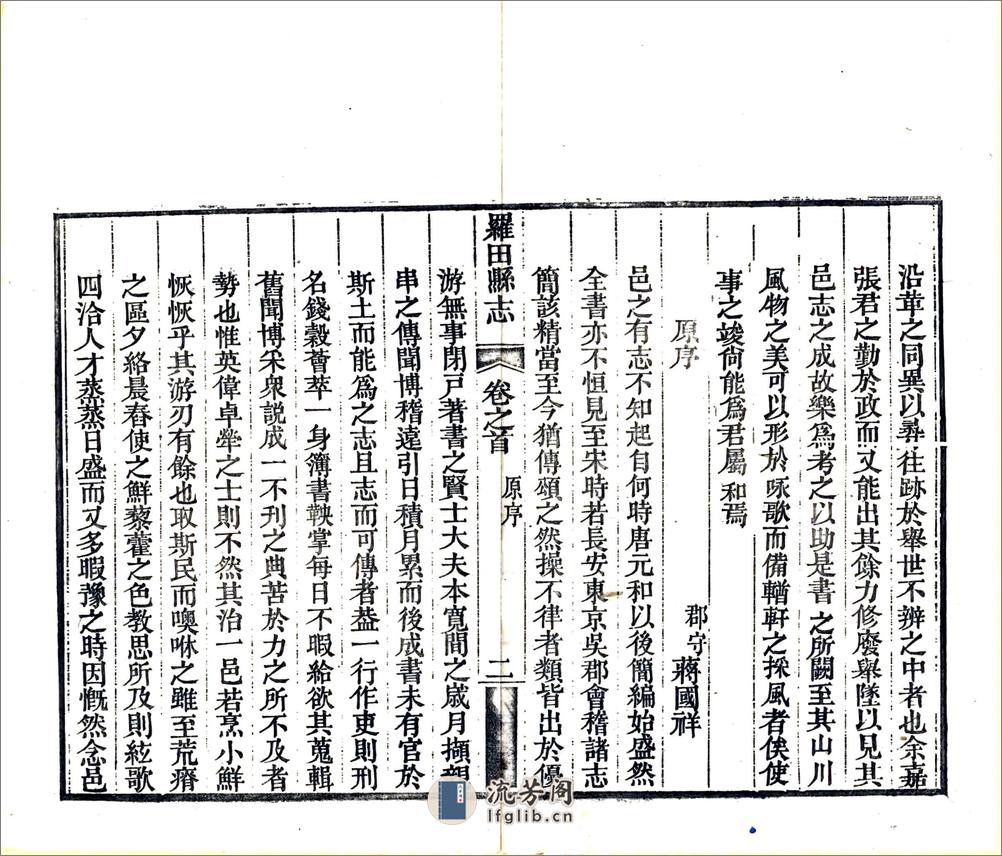 沿革之同異以尋往跡於舉世不辨之中者也余嘉
張君之勤於政而又能出其餘力修廢舉墜以見其
邑志之成故樂為考之以助是書之所闕至其山川
風物之美可以形於咏歌而備輶軒之採風者俟使
事之竣尙能為君屬和焉
原序
郡守蔣國祥
邑之有志不知起自何時唐元和以後簡編始盛然
全書亦不恒見至宋時若長安東京吳郡會稽諸志
簡該精當至今猶傳頌之然操不律者類皆出於優
羅田縣志 卷之首 原序 二
游無事閉戸著書之賢士大夫本寬閒之歲月擷親
串之傳聞博稽遠引日積月累而後成書未有官於
斯土而能為之志且志而可傳者葢一行作吏則刑
名錢穀薈萃一身簿書鞅掌每日不暇給欲其蒐輯
舊聞博采衆説成一不刋之典苦於力之所不及者
勢也惟英偉卓犖之士則不然其治一邑若烹小鮮
恢恢乎其游刃有餘也取斯民而噢咻之雖至荒瘠
之區夕絡晨舂使之鮮藜藿之色教思所及則絃歌
四洽人才蒸蒸日盛而又多暇豫之時因慨然念邑
流芳阁
lfglib.cn